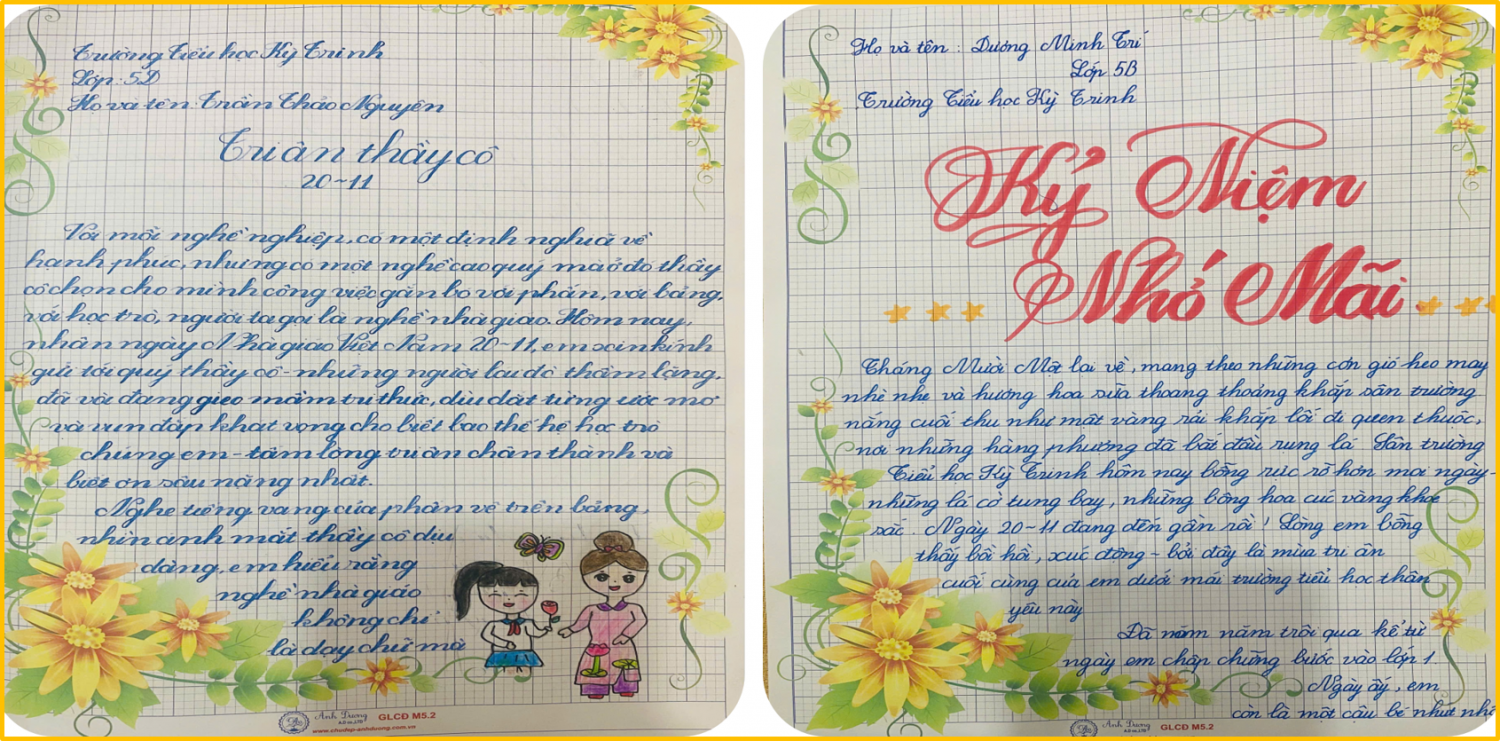 Trường Tiểu học Kỳ Trinh
Lớp: 5D
Họ và tên: Trần Thảo Nguyên
Tri ân thầy cô
20-11
Với mỗi nghề nghiệp, có một định nghĩa về
hạnh phúc, nhưng có một nghề cao quý mà ở đó thầy
cô chọn cho mình công việc gắn bó với phấn, với bảng,
với học trò, người ta gọi là nghề nhà giáo. Hôm nay,
nhân ngày Nhà giáo Việt Nam 20-11, em xin kính
gửi tới quý thầy cô - những người lái đò thầm lặng,
đã và đang gieo mầm tri thức, dìu dắt từng ước mơ
và vun đắp khát vọng cho biết bao thế hệ học trò
chúng em - tấm lòng tri ân chân thành và
biết ơn sâu nặng nhất.
Nghe tiếng vang của phấn về trên bảng,
nhìn ánh mắt thầy cô dịu
dàng, em hiểu rằng
nghề nhà giáo
không chỉ
là dạy chữ mà
Anh Dương
A.D co.,LTD
GLCĐ M5.2
www.chudep-anhduong.com.vn
Họ và tên: Dương Minh Trí
Lớp 5B
Trường Tiểu học Kỳ Trinh
Kỷ Niệm
Nhớ Mãi.
Tháng Mười Một lại về, mang theo những cơn gió heo may
nhè nhẹ và hương hoa sữa thoang thoảng khắp sân trường
nắng cuối thu như mật vàng rải khắp lối đi quen thuộc,
nơi những hàng phượng đã bắt đầu rụng lá. Sân trường
Tiểu học Kỳ Trinh hôm nay bỗng rực rỡ hơn mọi ngày -
những lá cờ tung bay, những bông hoa cúc vàng khoe
sắc. Ngày 20-11 đang đến gần rồi! Lòng em bỗng
thấy bồi hồi, xúc động - bởi đây là mùa tri ân
cuối cùng của em dưới mái trường tiểu học thân
yêu này
Đã năm năm trôi qua kể từ
ngày em chập chững bước vào lớp 1
Ngày ấy, em
còn là một cậu bé nhút nhá
Anh Dương
A.D co.,LTD
GLCĐ M5.2